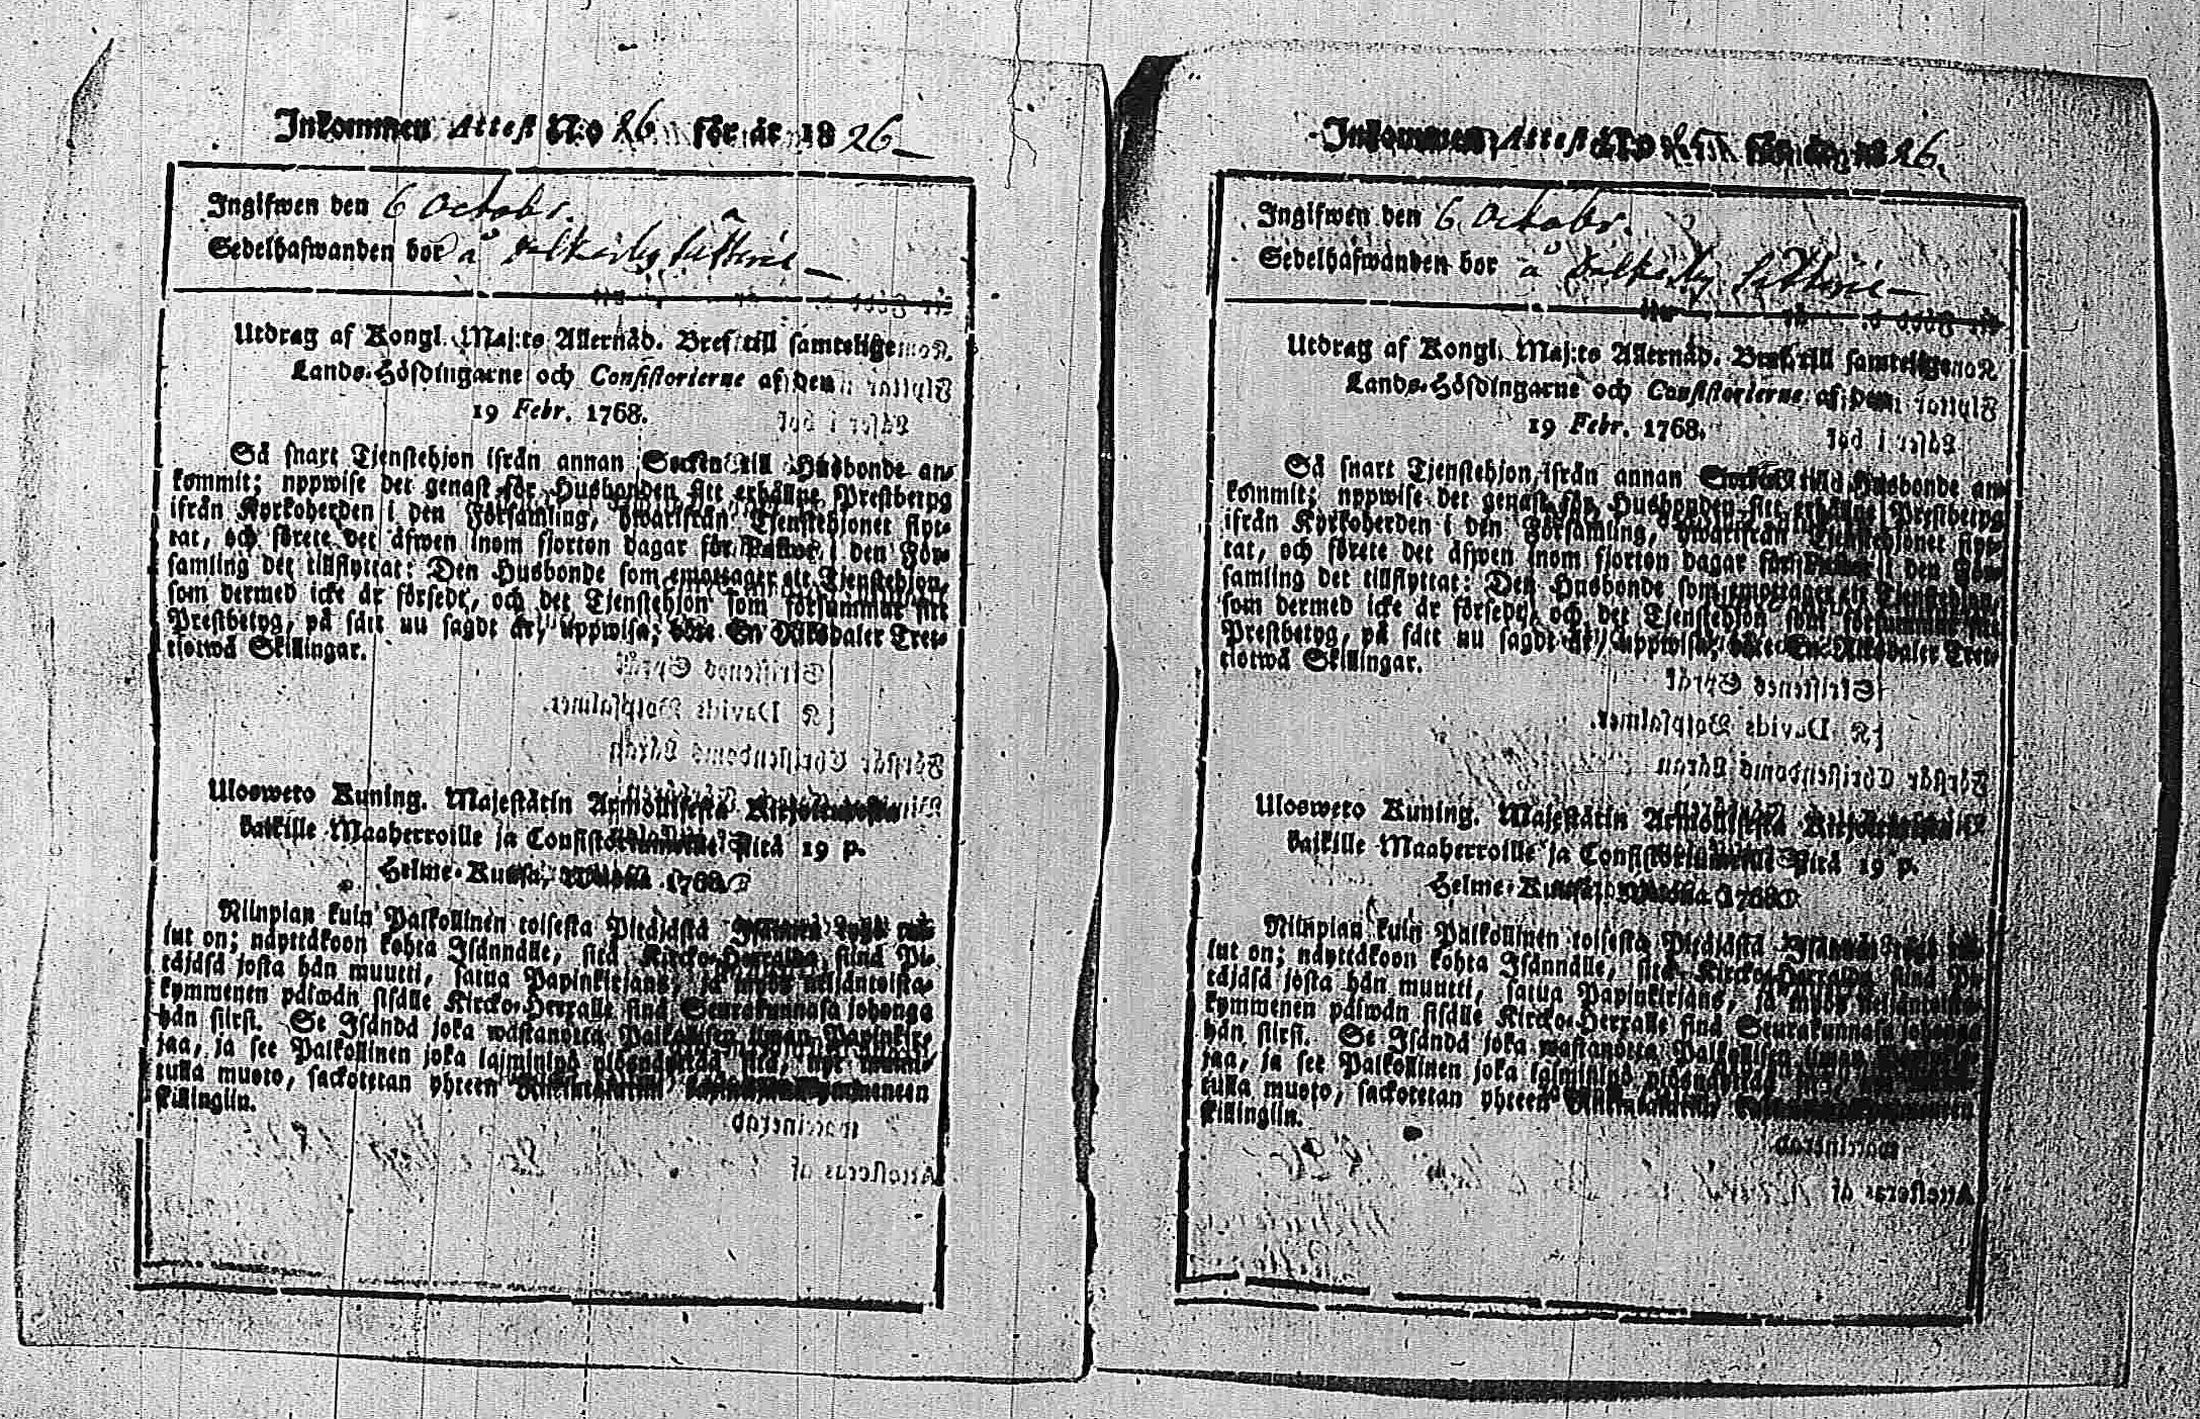 Inkommen Attest N:o 26 för år 1826
Ingifwen den 6 Octobr.
Sedelhafwanden bor å
Utdrag af Kongl. Maj:ts Allernåd. Bref till samtelige
Lands-Höfdingarne och Consistorierne af den
19 Febr. 1768.
Så snart Tjenstehjon ifrån annan Socken till Husbonde an-
kommit; uppwise det genast för Husbonden sitt erhållne Prestbetyg
ifrån Kyrkoherden i den Församling, hwarifrån Tjenstehjonet flyt-
tat, och förete det äfwen inom fjorton dagar för Pastor i den För-
samling det tillflyttat: Den Husbonde som emottager ett Tjenstehjon,
som dermed icke är försedt, och det Tjenstehjon som försummar sitt
Prestbetyg, på sätt nu sagdt är, uppwisa; böte En Riksdaler Tret-
tiotwå Skillingar.
Ulosweto Kuning. Majestätin Armollisesta Kirjoituxesta
kaikille Maaherroille ja Consistoriumeille sitä 19 p.
Helme-Kuusa, wuonna 1768.
Niinpian kuin Palkollinen toisesta Pitäjästä Isännän työö tul-
lut on; näyttäkoon kohta Isännälle, sitä Kircko-Herralda siinä Pi-
täjäsä josta hän muutti, saatua Papinkirjans, ja myös neljäntoista-
kymmenen päiwän sisälle Kircko-Herralle siinä Seurakunnasa johonga
hän siirsi. Se Isändä joka wastanotta Palkollisen ilman Papinkir-
jaa, ja see Palkollinen joka laiminlyö ylösnäyttää sitä, nyt
tulla muoto, sackotetan yhteen Riikintalariin
skillingiin.
Inkommen Attest N:o för år 1826.
Ingifwen den 6 Octobr.
Sedelhafwanden bor å
Utdrag af Kongl. Maj:ts Allernåd. Bref till samtelige
Lands-Höfdingarne och Consistorierne af den
19 Febr. 1768.
Så snart Tjenstehjon ifrån annan Socken till Husbonde an-
kommit; uppwise det genast för Husbonden sitt erhållne Prestbetyg
ifrån Kyrkoherden i den Församling, hwarifrån Tjenstehjonet flyt-
tat, och förete det äfwen inom fjorton dagar för Pastor i den För-
samling det tillflyttat: Den Husbonde som emottager ett Tjenstehjon,
som dermed icke är försedt, och det Tjenstehjon som försummar sitt
Prestbetyg, på sätt nu sagdt är, uppwisa; böte En Riksdaler Tret-
tiotwå Skillingar.
Ulosweto Kuning. Majestätin Armollisesta Kirjoituxesta
kaikille Maaherroille ja Consistoriumeille sitä 19 p.
Helme-Kuusa, wuonna 1768.
Niinpian kuin Palkollinen toisesta Pitäjästä Isännän työö tul-
lut on; näyttäkoon kohta Isännälle, sitä Kircko-Herralda siinä Pi-
täjäsä josta hän muutti, saatua Papinkirjans, ja myös neljäntoista-
kymmenen päiwän sisälle Kircko-Herralle siinä Seurakunnasa johonga
hän siirsi. Se Isändä joka wastanotta Palkollisen ilman
jaa, ja see Palkollinen joka laiminlyö ylösnäyttää
tulla muoto, sackotetan yhteen Riikintalariin
skillingiin.